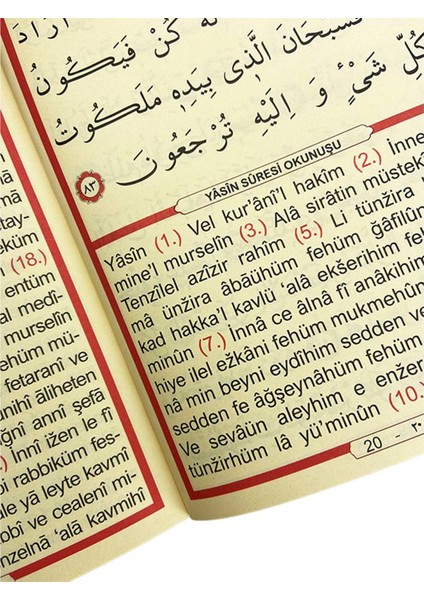 كُنْ فَيَكُونُ
فَسُبْحَانَ الَّذ۪ي بِيَدِه۪ مَلَكُوتُ
كُلِّ شَيْءٍ وَ اِلَيْهِ تُرْجَعُونَ
٨٣
YÂSİN SÛRESİ OKUNUŞU
Yâsîn (1.) Vel kur’âni’l hakîm (2.) İnne
mine’l murselîn (3.) Alâ sirâtin müstekî
Tenzîlel azîzir rahîm (5.) Li tünžira
mâ ünžira âbâühüm fehüm ğâfilûn
kad hakka’l kavlü ‘alâ ekšerihim fe
minûn (7.) İnnâ ce âlnâ fî anâkihim
hiye ilel ežkâni fehüm mukmehûn
nâ min beyni eydîhim sedden ve
sedden fe âğşeynâhüm fehüm
Ve sevâün aleyhim e enžer
tünžirhüm lâ yü’minûn (10.)
20 - ٢٠
tay-
eküm
(18.)
entüm
al medî-
murselîn
ehüm mü-
fetaranî ve
unihî âliheten
ğnî annî şefâ
.) İnnî ižen le fî
i rabbiküm fes-
ale yâ leyte kavmî
bbî ve cealenî mi-
nzelnâ ‘alâ kavmihî